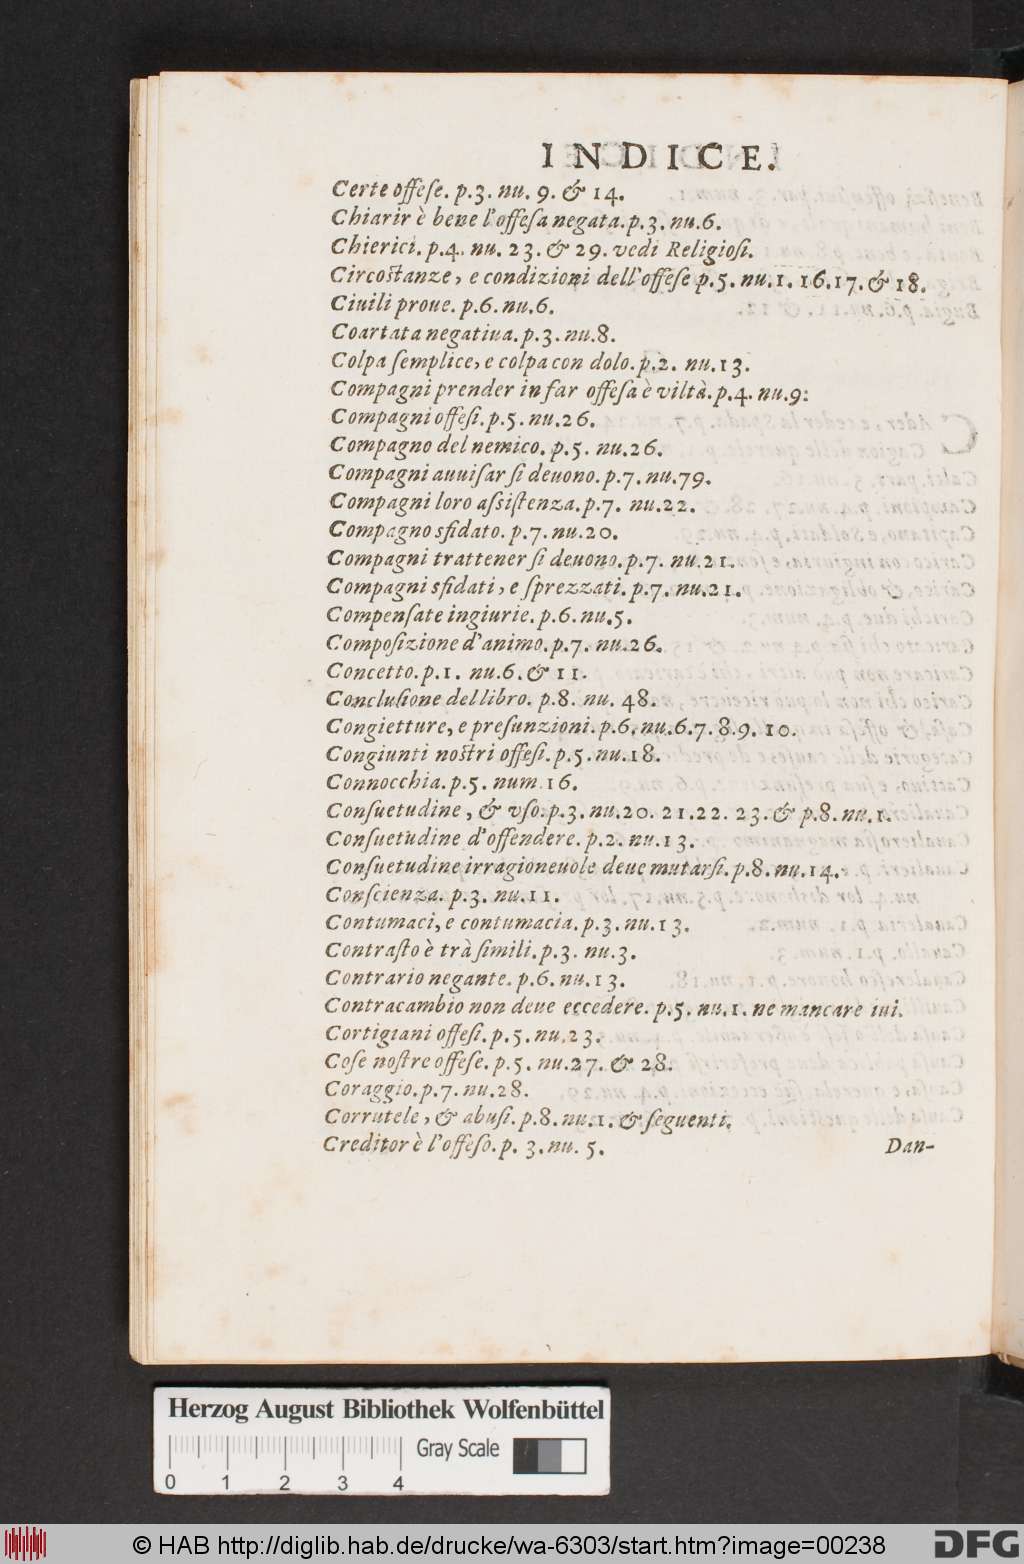 INDICE.
Certe offeſe. p.3. nu. 9. & 14.
Chiarir è bene l'offeſa negata. p.3. nu.6.
Chierici. p.4. nu. 23. & 29. vedi Religioſi.
Circoſtanze, e condizioni dell'offeſe p.5. nu.1. 16.17. & 18.
Ciuili proue. p.6. nu.6.
Coartata negatiua. p.3. nu.8.
Colpa ſemplice, e colpa con dolo. p.2. nu.13.
Compagni prender in far offeſa è viltà. p.4. nu.9:
Compagni offeſi. p.5. nu.26.
Compagno del nemico. p.5. nu.26.
Compagni auuiſar ſi deuono. p.7. nu.79.
Compagni loro aſsiſtenza. p.7. nu.22.
Compagno sfidato. p.7. nu.20.
Compagni trattener ſi deuono. p.7. nu.21.
Compagni sfidati, e ſprezzati. p.7. nu.21.
Compenſate ingiurie. p.6. nu.5.
Compoſizione d'animo. p.7. nu.26.
Concetto. p.1. nu.6. & 11.
Concluſione del libro. p.8. nu. 48.
Congietture, e preſunzioni. p.6. nu.6.7.8.9. 10.
Congiunti noſtri offeſi. p.5. nu.18.
Connocchia. p.5. num.16.
Conſuetudine, & vſo. p.3. nu.20. 21.22. 23. & p.8. nu.1.
Conſuetudine d'offendere. p.2. nu.13.
Conſuetudine irragioneuole deue mutarſi. p.8. nu.14.
Conſcienza. p.3. nu.11.
Contumaci, e contumacia. p.3. nu.13.
Contraſto è trà ſimili. p.3. nu.3.
Contrario negante. p.6. nu.13.
Contracambio non deue eccedere. p.5. nu.1. ne mancare iui.
Cortigiani offeſi. p.5. nu.23.
Coſe noſtre offeſe. p.5. nu.27. & 28.
Coraggio. p.7. nu.28.
Corrutele, & abuſi. p.8. nu.1. & ſeguenti.
Creditor è l'offeſo. p. 3. nu. 5.
Dan-
Herzog August Bibliothek Wolfenbüttel
Gray Scale
0 1 2 3 4
© HAB http://diglib.hab.de/drucke/wa-6303/start.htm?image=00238
DFG